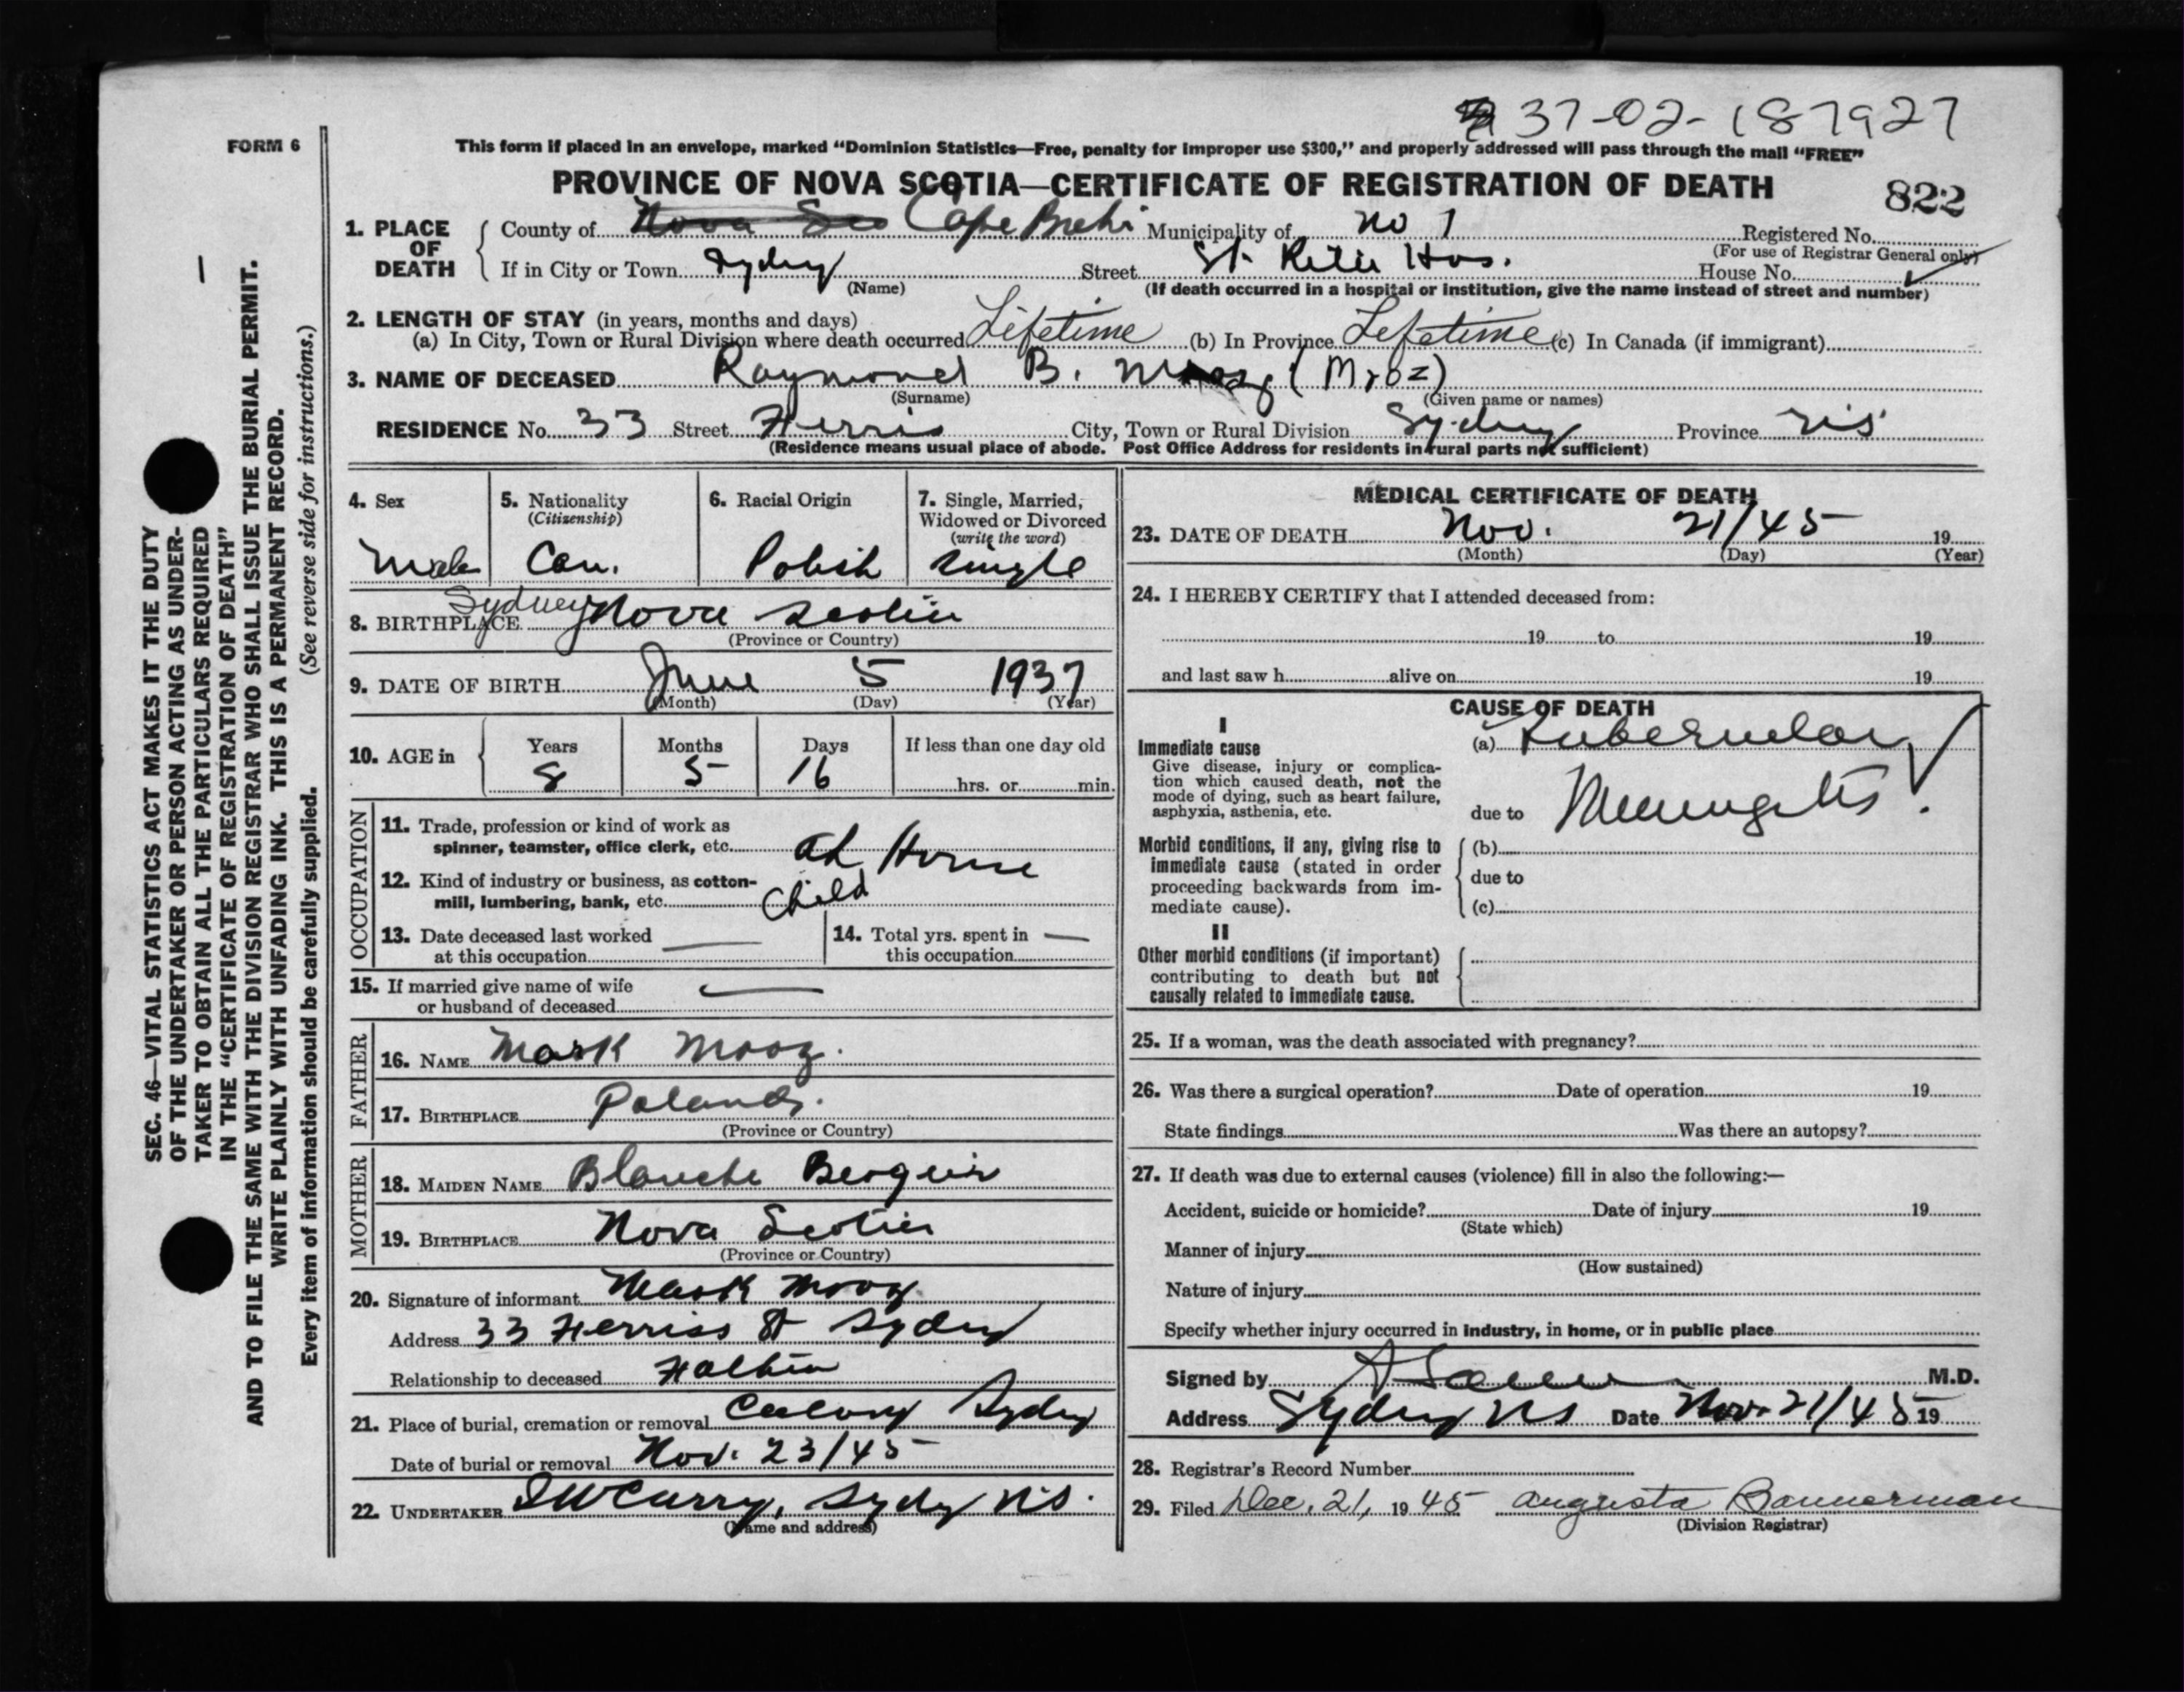 37-02-187927
FORM 6
This form if placed in an envelope, marked “Dominion Statistics—Free, penalty for improper use $300,” and properly addressed will pass through the mail “FREE”
PROVINCE OF NOVA SCOTIA—CERTIFICATE OF REGISTRATION OF DEATH
822
1. PLACE OF DEATH
County of Nova Sco Cape Breton Municipality of No 1 Registered No.
(For use of Registrar General only)
If in City or Town Sydney Street St. Rita Hos. House No.
(Name) (If death occurred in a hospital or institution, give the name instead of street and number)
2. LENGTH OF STAY (in years, months and days)
(a) In City, Town or Rural Division where death occurred Lifetime (b) In Province Lifetime (c) In Canada (if immigrant)
3. NAME OF DECEASED Raymond B. Mrooz (Mroz)
(Surname) (Given name or names)
RESIDENCE No. 33 Street Ferris City, Town or Rural Division Sydney Province NS
(Residence means usual place of abode. Post Office Address for residents in rural parts not sufficient)
4. Sex
Male
5. Nationality
(Citizenship)
Can.
6. Racial Origin
Polish
7. Single, Married, Widowed or Divorced
(write the word)
Single
8. BIRTHPLACE Sydney Nova Scotia
(Province or Country)
9. DATE OF BIRTH June 5 1937
(Month) (Day) (Year)
10. AGE in Years Months Days If less than one day old
8 5 16 hrs. or min.
OCCUPATION
11. Trade, profession or kind of work as
spinner, teamster, office clerk, etc. At Home
12. Kind of industry or business, as cotton-
mill, lumbering, bank, etc. Child
13. Date deceased last worked
at this occupation
14. Total yrs. spent in
this occupation
15. If married give name of wife
or husband of deceased
FATHER
16. NAME Mark Mooz.
17. BIRTHPLACE Poland.
(Province or Country)
MOTHER
18. MAIDEN NAME Blanche
19. BIRTHPLACE Nova Scotia
(Province or Country)
20. Signature of informant Mark Mooz
Address 33 Ferriss St Sydney
Relationship to deceased Father
21. Place of burial, cremation or removal Calvary Sydney
Date of burial or removal Nov. 23/45
22. UNDERTAKER Curry, Sydney N.S.
(Name and address)
MEDICAL CERTIFICATE OF DEATH
23. DATE OF DEATH Nov. 21/45 19
(Month) (Day) (Year)
24. I HEREBY CERTIFY that I attended deceased from:
19 to 19
and last saw h alive on 19
CAUSE OF DEATH
I
Immediate cause
Give disease, injury or complica-
tion which caused death, not the
mode of dying, such as heart failure,
asphyxia, asthenia, etc.
(a) Tubercular
due to Meningitis
Morbid conditions, if any, giving rise to
immediate cause (stated in order
proceeding backwards from im-
mediate cause).
(b)
due to
(c)
II
Other morbid conditions (if important)
contributing to death but not
causally related to immediate cause.
25. If a woman, was the death associated with pregnancy?
26. Was there a surgical operation? Date of operation 19
State findings Was there an autopsy?
27. If death was due to external causes (violence) fill in also the following:—
Accident, suicide or homicide? Date of injury 19
(State which)
Manner of injury
(How sustained)
Nature of injury
Specify whether injury occurred in industry, in home, or in public place
Signed by M.D.
Address Sydney NS Date Nov. 21/45 19
28. Registrar's Record Number
29. Filed Dec. 21, 1945 Augusta Bannerman
(Division Registrar)
SEC. 46—VITAL STATISTICS ACT MAKES IT THE DUTY
OF THE UNDERTAKER OR PERSON ACTING AS UNDER-
TAKER TO OBTAIN ALL THE PARTICULARS REQUIRED
IN THE “CERTIFICATE OF REGISTRATION OF DEATH”
AND TO FILE THE SAME WITH THE DIVISION REGISTRAR WHO SHALL ISSUE THE BURIAL PERMIT.
WRITE PLAINLY WITH UNFADING INK. THIS IS A PERMANENT RECORD.
Every item of information should be carefully supplied. (See reverse side for instructions.)